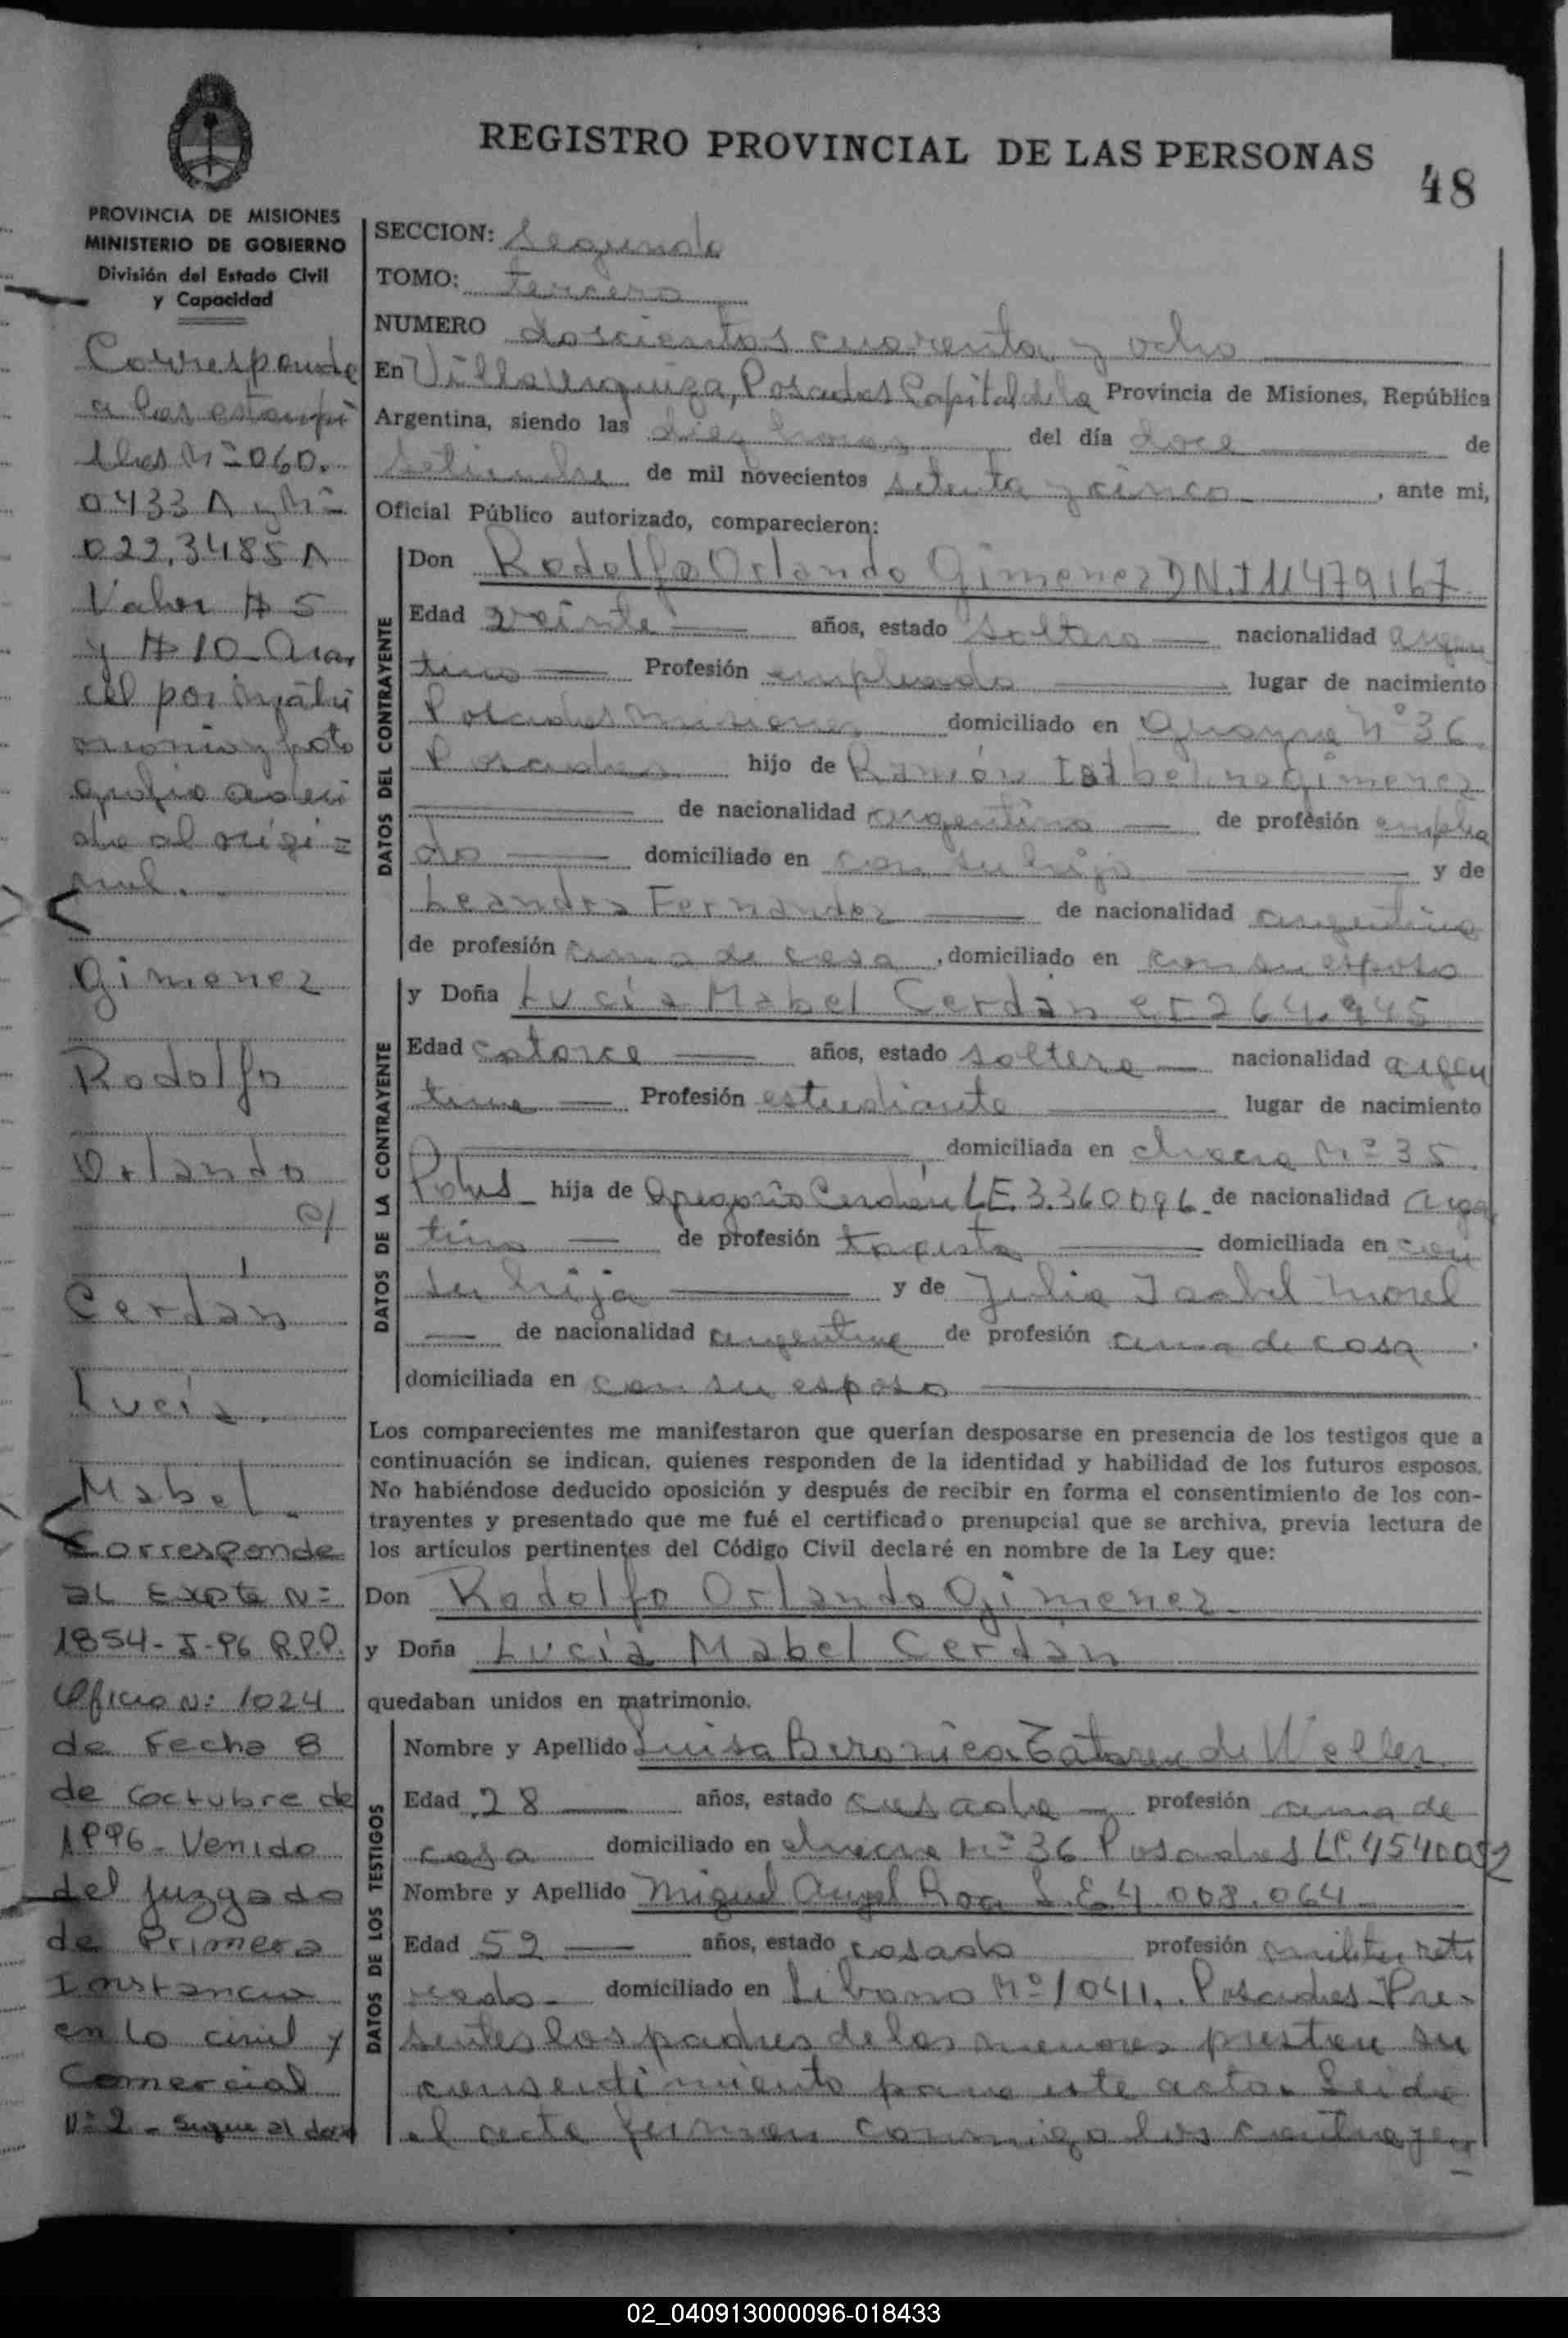 REGISTRO PROVINCIAL DE LAS PERSONAS
48
PROVINCIA DE MISIONES
MINISTERIO DE GOBIERNO
División del Estado Civil
y Capacidad
Corresponde
a las estampi
llas Nº 060.
0433 A y Nº
022.3485 A
Valor $ 5
y $ 10 - Aran
cel por matri
monio y foto
copia adheri
da al origi=
nal.
Gimenez
Rodolfo
Orlando
c/
Cerdán
Lucía
Mabel
Corresponde
al Expte Nº
1854-I-96 R.P.P.
Oficio Nº 1024
de Fecha 8
de Octubre de
1996 - Venido
del Juzgado
de Primera
Instancia
en lo civil y
Comercial
Nº 2 - Sigue al dorso
SECCION: Segunda
TOMO: tercero
NUMERO doscientos cuarenta y ocho
En Villa Urquiza, Posadas Capital de la Provincia de Misiones, República
Argentina, siendo las diez horas del día doce de
setiembre de mil novecientos setenta y cinco, ante mi,
Oficial Público autorizado, comparecieron:
DATOS DEL CONTRAYENTE
Don Rodolfo Orlando Gimenez DN.I 11479167
Edad veinte años, estado soltero nacionalidad argen
tino Profesión empleado lugar de nacimiento
Posadas Misiones domiciliado en Nº 36
Posadas hijo de Ramón Gimenez
de nacionalidad argentino de profesión emplea
do domiciliado en con su hijo y de
Leandra Fernandez de nacionalidad argentina
de profesión ama de casa, domiciliado en con su esposo
DATOS DE LA CONTRAYENTE
y Doña Lucía Mabel Cerdán CI 264.945
Edad catorce años, estado soltera nacionalidad argen
tina Profesión estudiante lugar de nacimiento
domiciliada en chacra Nº 35.
Pdas hija de Gregorio Cerdán LE. 3.360096 de nacionalidad argen
tino de profesión domiciliada en con
su hija y de Julia Isabel Morel
de nacionalidad argentina de profesión ama de casa.
domiciliada en con su esposo
Los comparecientes me manifestaron que querían desposarse en presencia de los testigos que a
continuación se indican, quienes responden de la identidad y habilidad de los futuros esposos.
No habiéndose deducido oposición y después de recibir en forma el consentimiento de los con-
trayentes y presentado que me fué el certificado prenupcial que se archiva, previa lectura de
los artículos pertinentes del Código Civil declaré en nombre de la Ley que:
Don Rodolfo Orlando Gimenez
y Doña Lucía Mabel Cerdán
quedaban unidos en matrimonio.
DATOS DE LOS TESTIGOS
Nombre y Apellido Luisa Beronica de
Edad 28 años, estado casada profesión ama de
casa domiciliado en chacra Nº 36 Posadas LC. 4540052
Nombre y Apellido Miguel Angel Roa L.E 4.008.064
Edad 52 años, estado casado profesión militar reti
rado - domiciliado en Libano Nº 1041. Posadas - Pre-
sentes los padres de los menores prestan su
consentimiento para este acto. Leida
el acta firman conmigo los contrayen
02_040913000096-018433